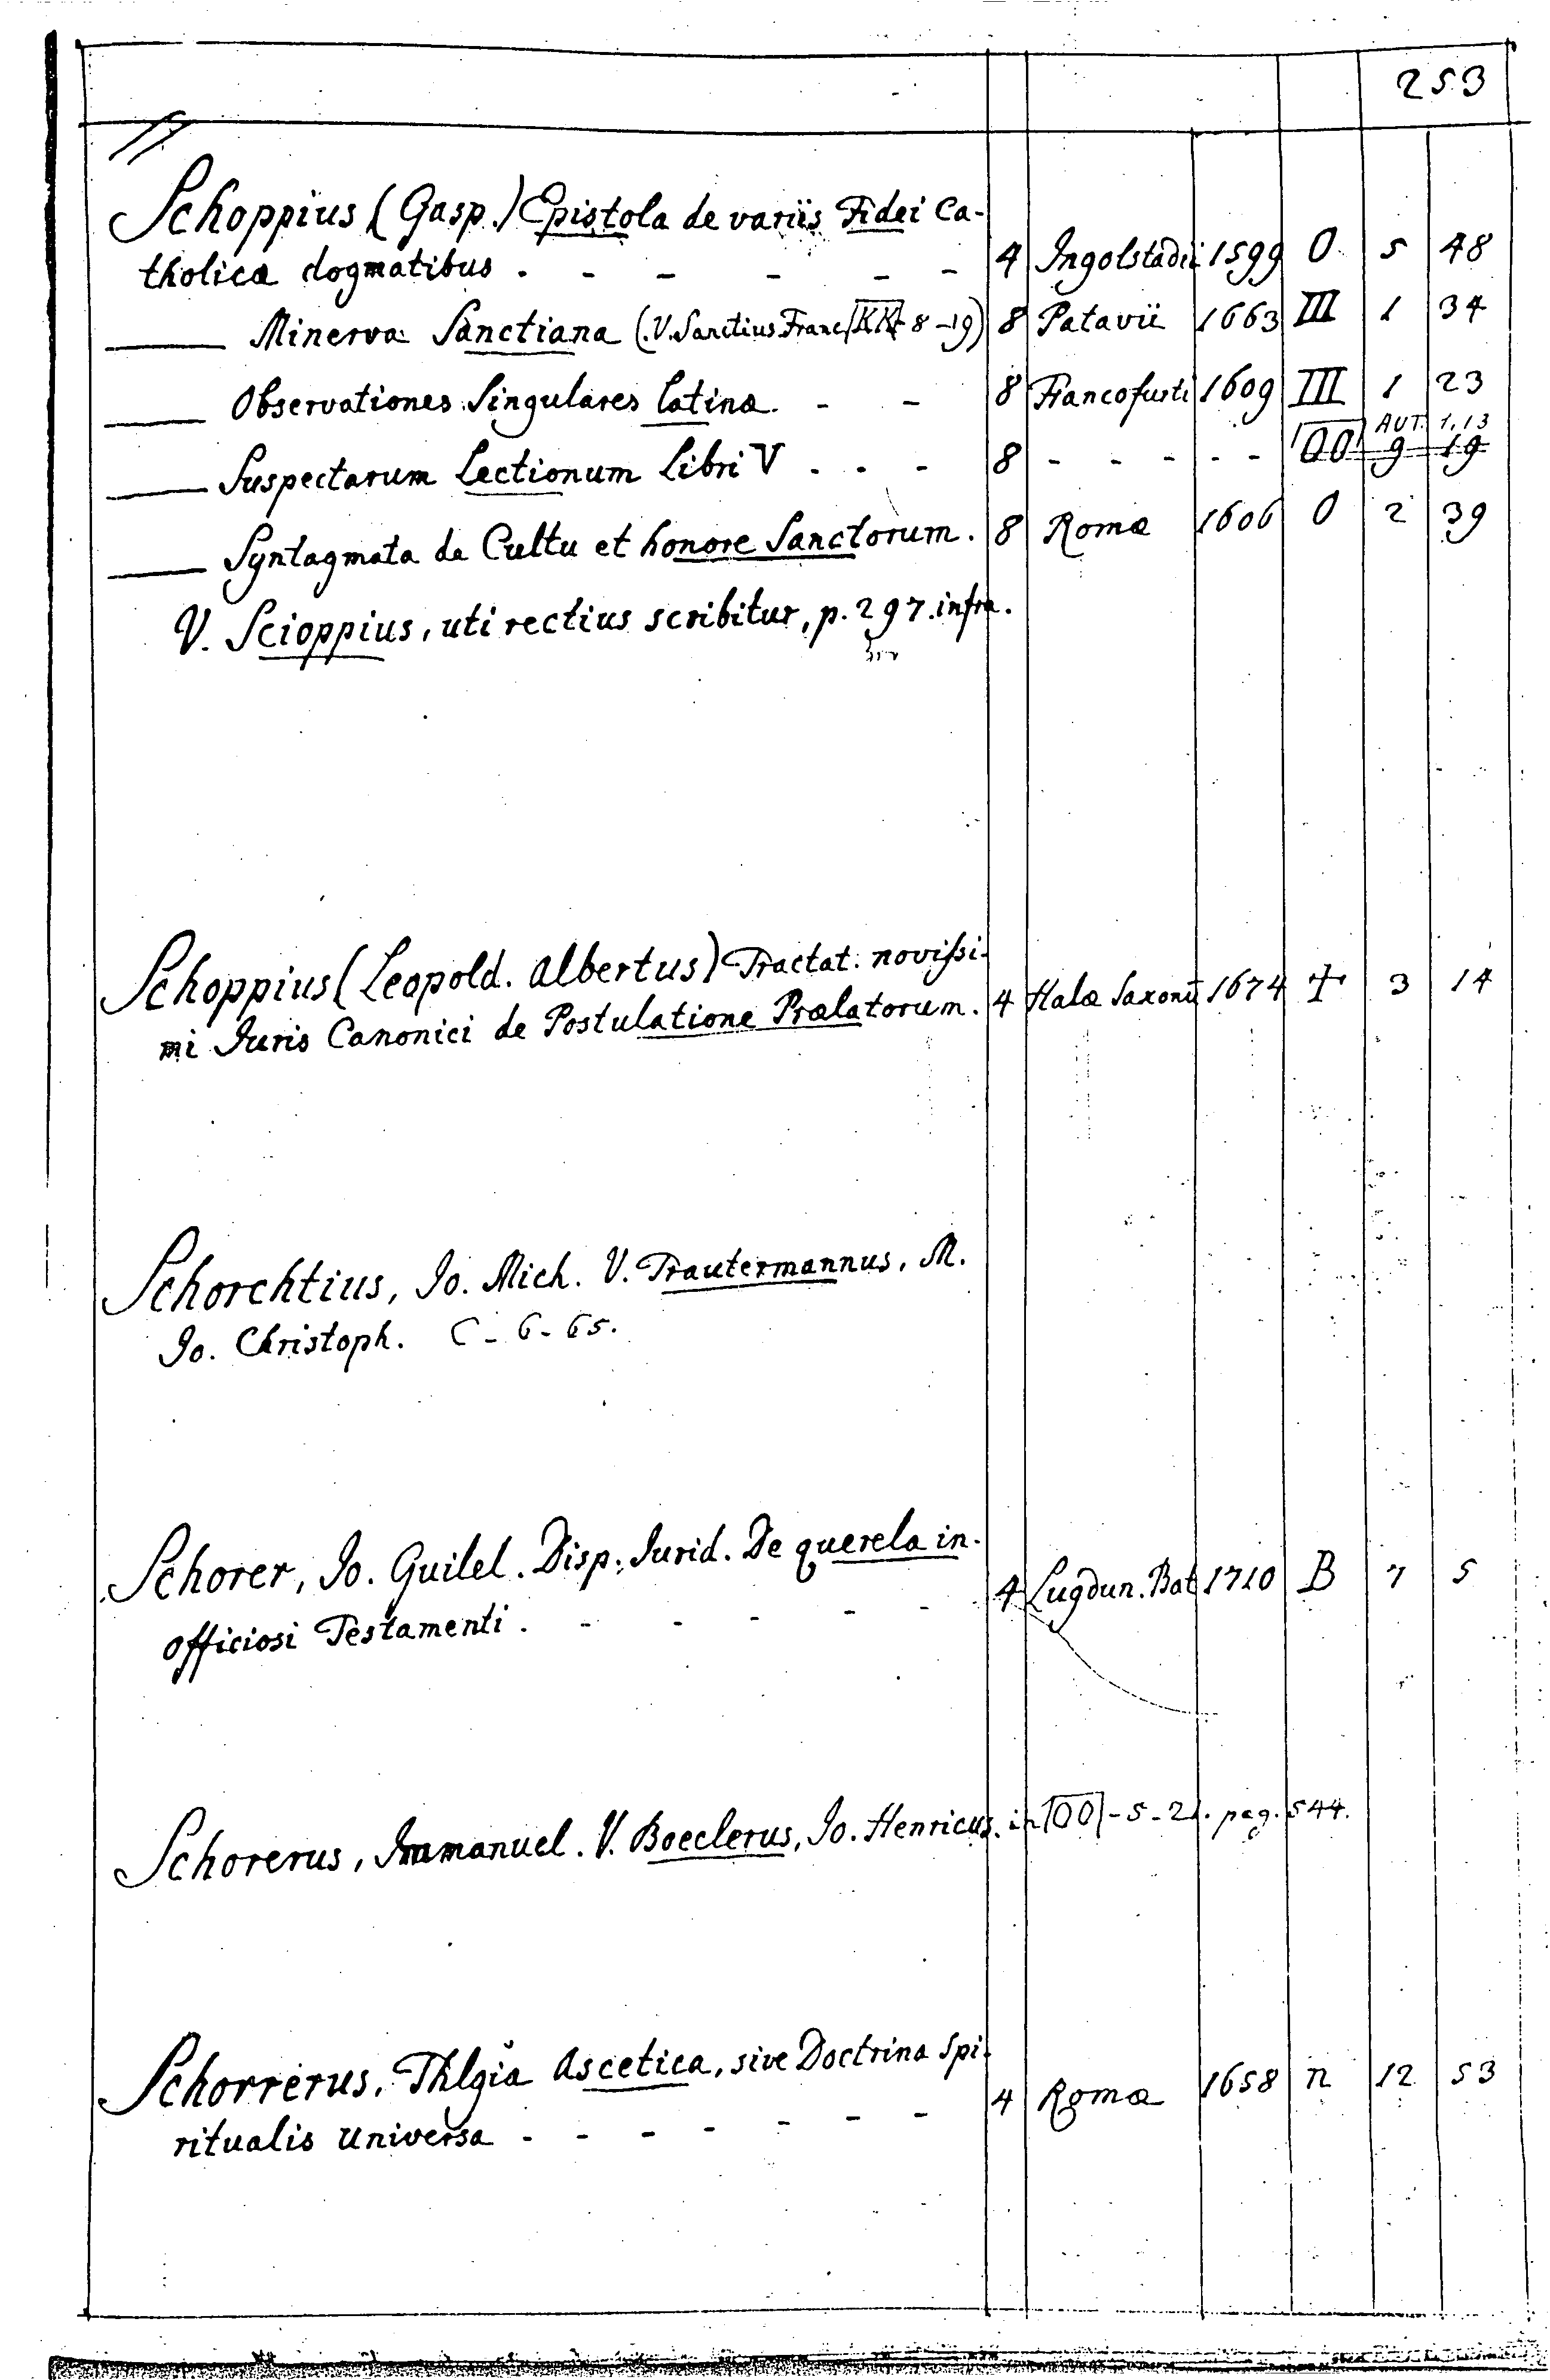 253
Schoppius (Gasp.) Epistola de variis Fidei Ca-
tholicæ dogmatibus . - - - - - 4 Ingolstadii 1599 O 5 48
—— Minerva Sanctiana (V. Sanctius Franc. KK - 8 - 19) 8 Patavii 1663 III 1 34
—— Observationes Singulares latinæ. - - 8 Francofurti 1609 III 1 23
AUT. 1. 13
—— Suspectarum Lectionum Libri V . - - 8 - - - - - OO 9 19
—— Syntagmata de Cultu et honore Sanctorum. 8 Romæ 1606 O 2 39
V. Scioppius, uti rectius scribitur, p. 297. infra.
Schoppius (Leopold. Albertus) Tractat. novissi-
mi Juris Canonici de Postulatione Prælatorum. 4 Halæ Saxonū 1674 + 3 14
Schorchtius, Jo. Mich. V. Trautermannus, M.
Jo. Christoph. C - 6 - 65.
Schorer, Jo. Guilel. Disp. Jurid. De querela in-
officiosi Testamenti . - - - - - 4 Lugdun. Bat 1710 B 7 5
Schorerus, Immanuel. V. Boeclerus, Jo. Henricus. in OO - 5 - 21. pag. 544.
Schorrerus, Thlgia Ascetica, sive Doctrina Spi-
ritualis universa . - - - - - - 4 Romæ 1658 n 12 53